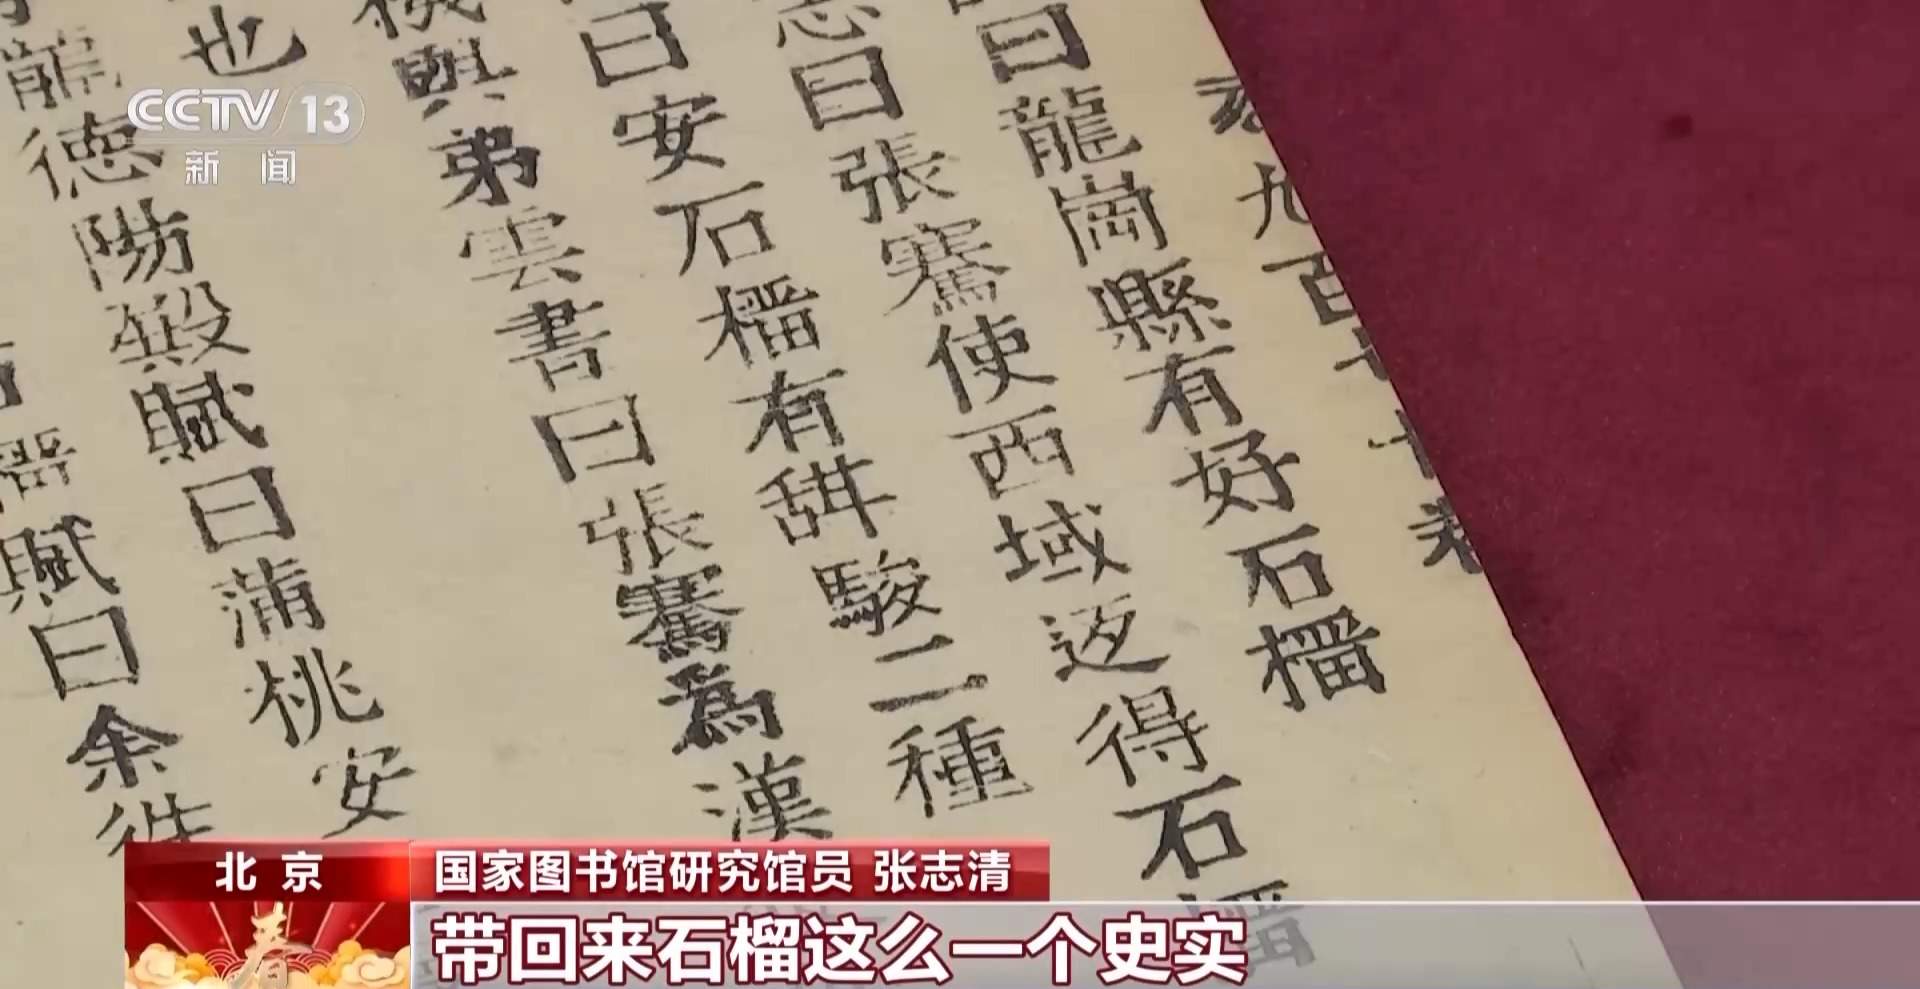 CCTV 13
新闻
九百
曰龍崗縣有好石榴
志曰張騫使西域返得石榴
曰安石榴有甛駿二種
機與弟雲書曰張騫為漢
也
龍德陽殿賦曰蒲桃安
榴賦曰余徃
北京
国家图书馆研究馆员 张志清
带回来石榴这么一个史实
春